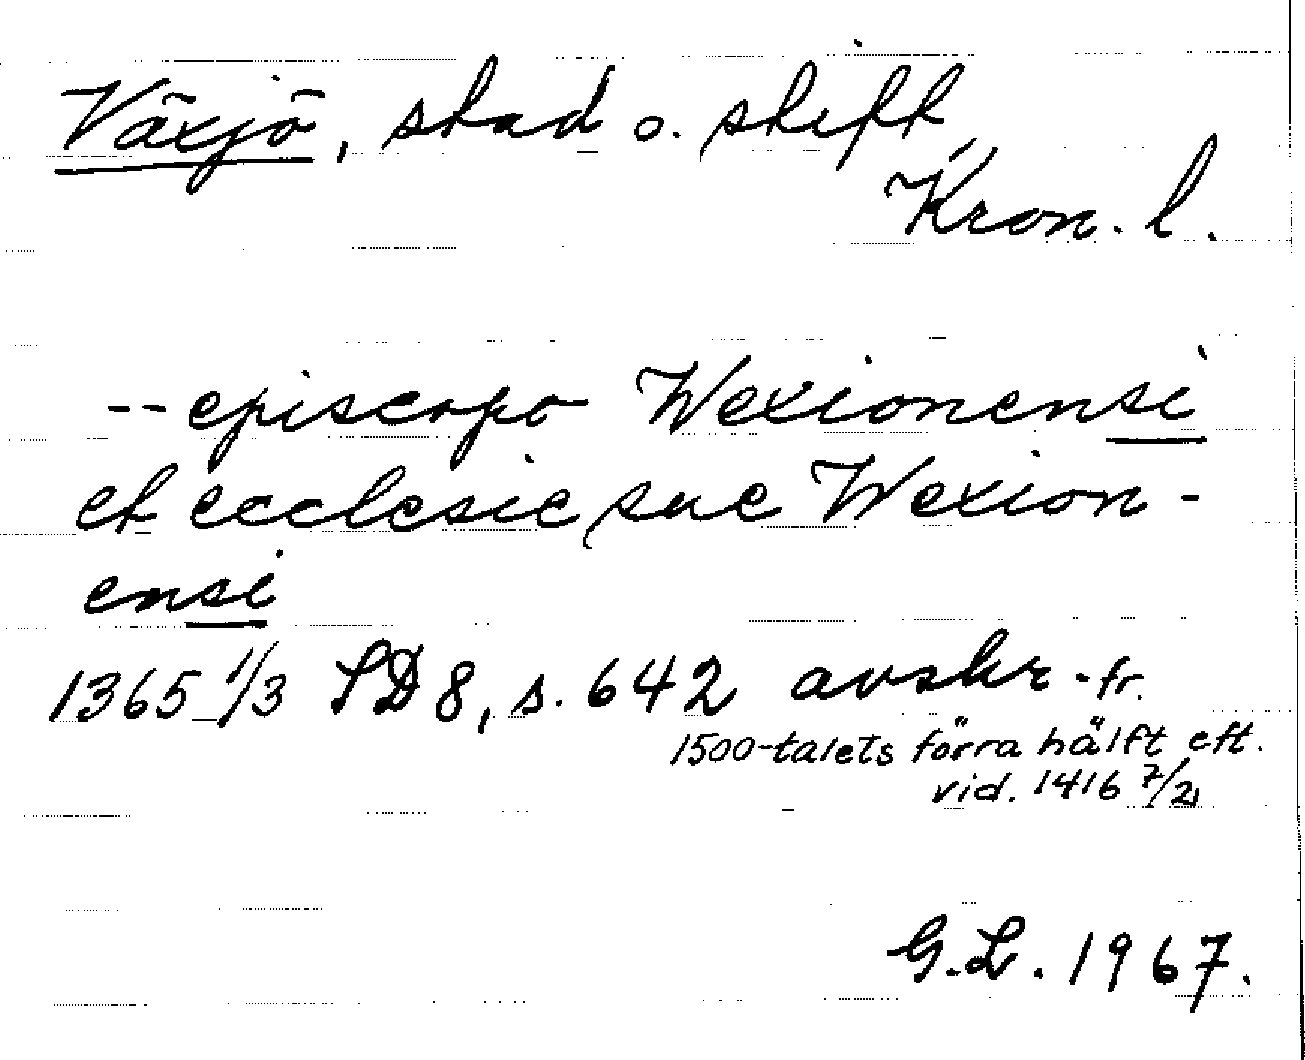 Växjö, stad o. stift
Kron. l.
--episcopo Wexionensi
et ecclesie sue Wexion-
ensi
1365 1/3 SD 8, s. 642 avskr. fr.
1500-talets förra hälft eft.
vid. 1416 7/2
G.L. 1967.